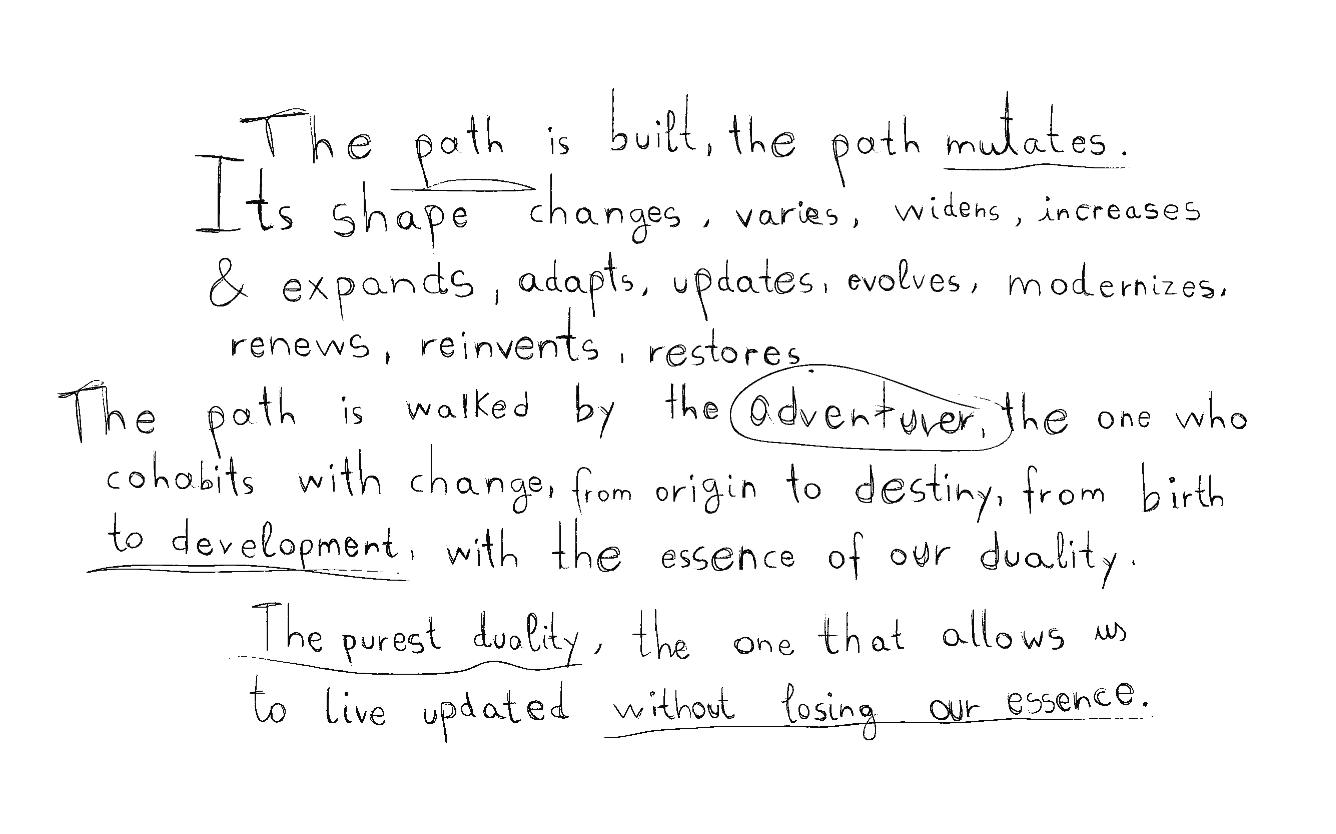 The path is built, the path mutates.
Its shape changes, varies, widens, increases
& expands, adapts, updates, evolves, modernizes,
renews, reinvents, restores.
The path is walked by the adventurer, the one who
cohabits with change, from origin to destiny, from birth
to development, with the essence of our duality.
The purest duality, the one that allows us
to live updated without losing our essence.